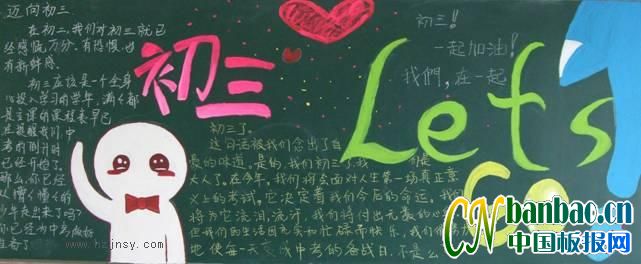 迈向初三
在初二,我们对初三就已
经感慨万分,有恐惧,也
有新鲜感。
初三应该是一个全身
心投入学习的学年,满
是立课的课程表早已
在提醒我们中
考的倒计时
已经开始了。
那么,你已经
从懵懂懂的
少年走出来了吗?
你已经为中考做好
准备了
初三
初三!!
一起加油!
我們,在一起
Let's
Go
初三了。
这句话被我们念出了自
豪的味道,是的,我们初三了,我
大人了,在今年,我们将会面对人生第一场真正意
义上的考试,它决定着我们今后的命运,我们
将为它流泪,流汗,我们将付出无数的
但我们的生活因充实和忙碌而快乐,我们
地使每一天变成中考的备战日,不是么
www.hzjnsy.com
CN banbao.cn
中国板报网